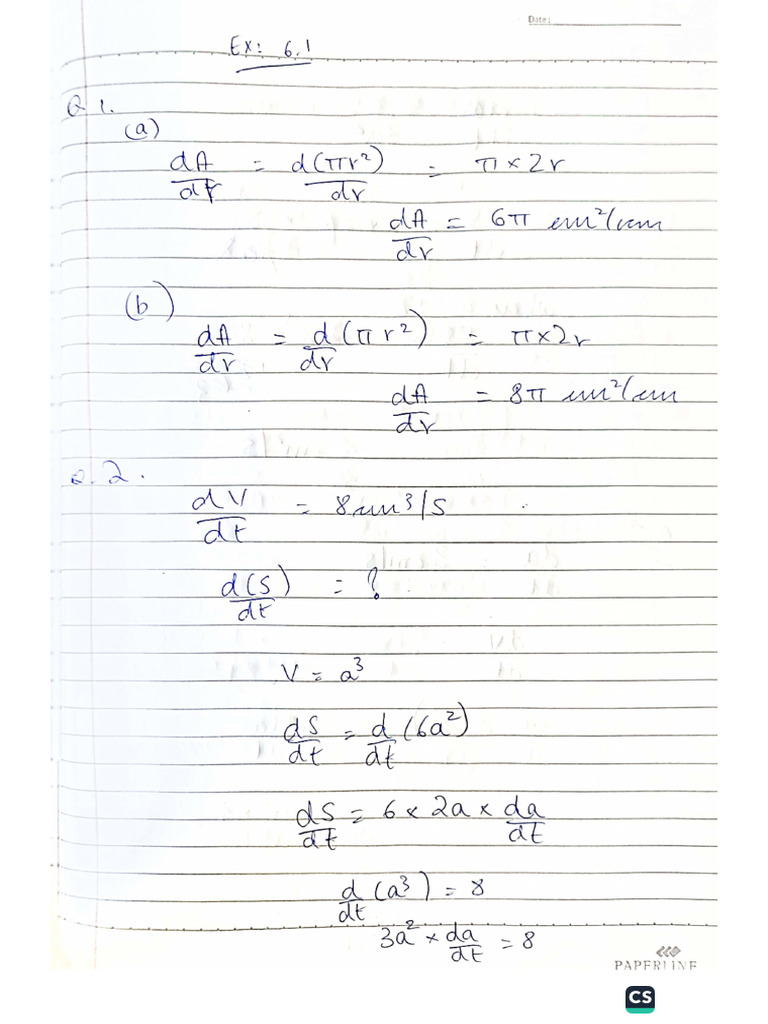 Date:
Ex: 6.1
Q 1.
(a)
dA/dr = d(πr²)/dr = π × 2r
dA/dr = 6π cm²/cm
(b)
dA/dr = d/dr (πr²) = π×2r
dA/dr = 8π cm²/cm
Q. 2.
dV/dt = 8cm³/S
d(S)/dt = ?
V = a³
dS/dt = d/dt (6a²)
dS/dt = 6 × 2a × da/dt
d/dt (a³) = 8
3a² × da/dt = 8
PAPERLINE
CS